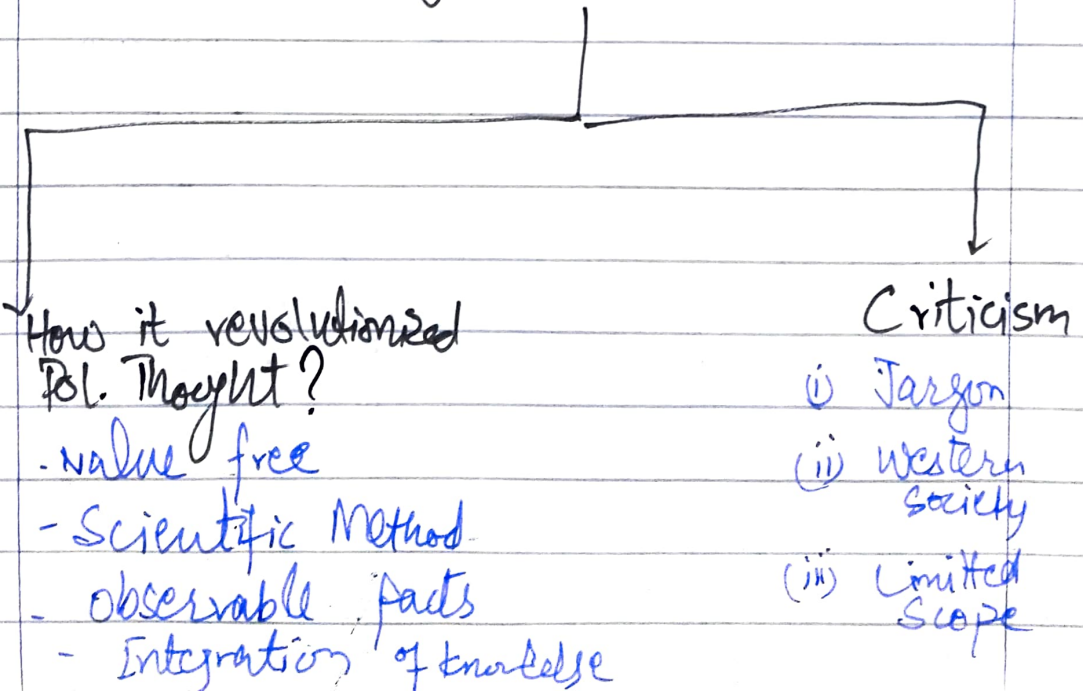 How it revolutionized
Pol. Thought?
- value free
- Scientific Method
- observable facts
- Integration of knowledge
Criticism
(i) Jargon
(ii) Western
Society
(iii) Limitted
Scope